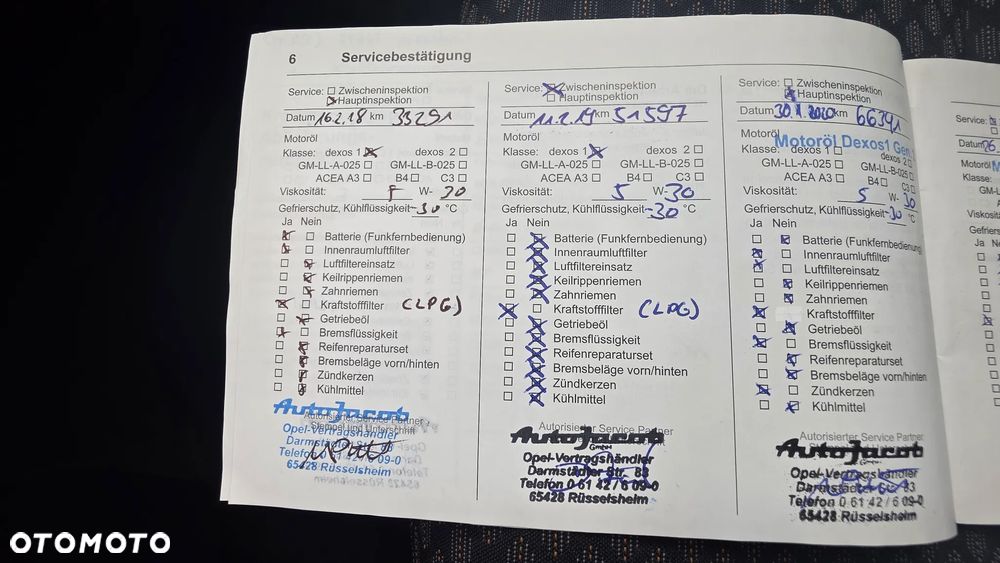 6 Servicebestätigung
Service: Zwischeninspektion
Hauptinspektion
Datum 16.2.18 km 33291
Motoröl
Klasse: dexos 1 dexos 2
GM-LL-A-025 GM-LL-B-025
ACEA A3 B4 C3
Viskosität: 5 W- 30
Gefrierschutz, Kühlflüssigkeit -30 °C
Ja Nein
Batterie (Funkfernbedienung)
Innenraumluftfilter
Luftfiltereinsatz
Keilrippenriemen
Zahnriemen
Kraftstofffilter (LPG)
Getriebeöl
Bremsflüssigkeit
Reifenreparaturset
Bremsbeläge vorn/hinten
Zündkerzen
Kühlmittel
AutoJacob
Autorisierter Service Partner
Stempel und Unterschrift
Opel-Vertragshändler
Darmstädter
Telefon 0 61 42 / 6 09-0
65428 Rüsselsheim
Service: Zwischeninspektion
Hauptinspektion
Datum 11.2.19 km 51597
Motoröl
Klasse: dexos 1 dexos 2
GM-LL-A-025 GM-LL-B-025
ACEA A3 B4 C3
Viskosität: 5 W- 30
Gefrierschutz, Kühlflüssigkeit -30 °C
Ja Nein
Batterie (Funkfernbedienung)
Innenraumluftfilter
Luftfiltereinsatz
Keilrippenriemen
Zahnriemen
Kraftstofffilter (LPG)
Getriebeöl
Bremsflüssigkeit
Reifenreparaturset
Bremsbeläge vorn/hinten
Zündkerzen
Kühlmittel
Autorisierter Service Partner
AutoJacob
GmbH
Opel-Vertragshändler
Darmstädter Str.
Telefon 0 61 42 / 6 09-0
65428 Rüsselsheim
Service: Zwischeninspektion
Hauptinspektion
Datum 2020 km 66391
Motoröl
Motoröl Dexos1 Gen.
Klasse: dexos 1 dexos 2
GM-LL-A-025 GM-LL-B-025
ACEA A3 B4 C3
Viskosität: 5 W- 30
Gefrierschutz, Kühlflüssigkeit -30 °C
Ja Nein
Batterie (Funkfernbedienung
Innenraumluftfilter
Luftfiltereinsatz
Keilrippenriemen
Zahnriemen
Kraftstofffilter
Getriebeöl
Bremsflüssigkeit
Reifenreparaturset
Bremsbeläge vorn/hinten
Zündkerzen
Kühlmittel
Autorisierter Service Partner
AutoJacob
GmbH
Opel-Vertragshändler
Telefon 0 61 42 / 6 09-0
65428 Rüsselsheim
Service:
Datum
Motoröl
Klasse:
Viskosität
Gefriers
Ja Ne
OTOMOTO